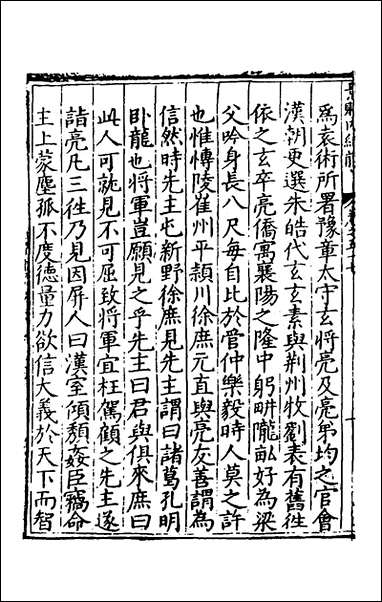 爲袁術所署豫章太守玄將亮及亮弟均之官會
漢朝更選朱皓代玄玄素與荆州牧劉表有舊徃
依之玄卒亮僑寓襄陽之隆中躬畊隴畝好為梁
父吟身長八尺每自比於管仲樂毅時人莫之許
也惟愽陵崔州平頴川徐庶元直與亮友善謂為
信然時先主屯新野徐庶見先主謂曰諸葛孔明
卧龍也將軍豈願見之乎先主曰君與俱來庶曰
此人可就見不可屈致將軍宜枉駕顧之先主遂
詣亮凡三徃乃見因屏人曰漢室傾頽姦臣竊命
主上蒙塵孤不度德量力欲信大義於天下而智